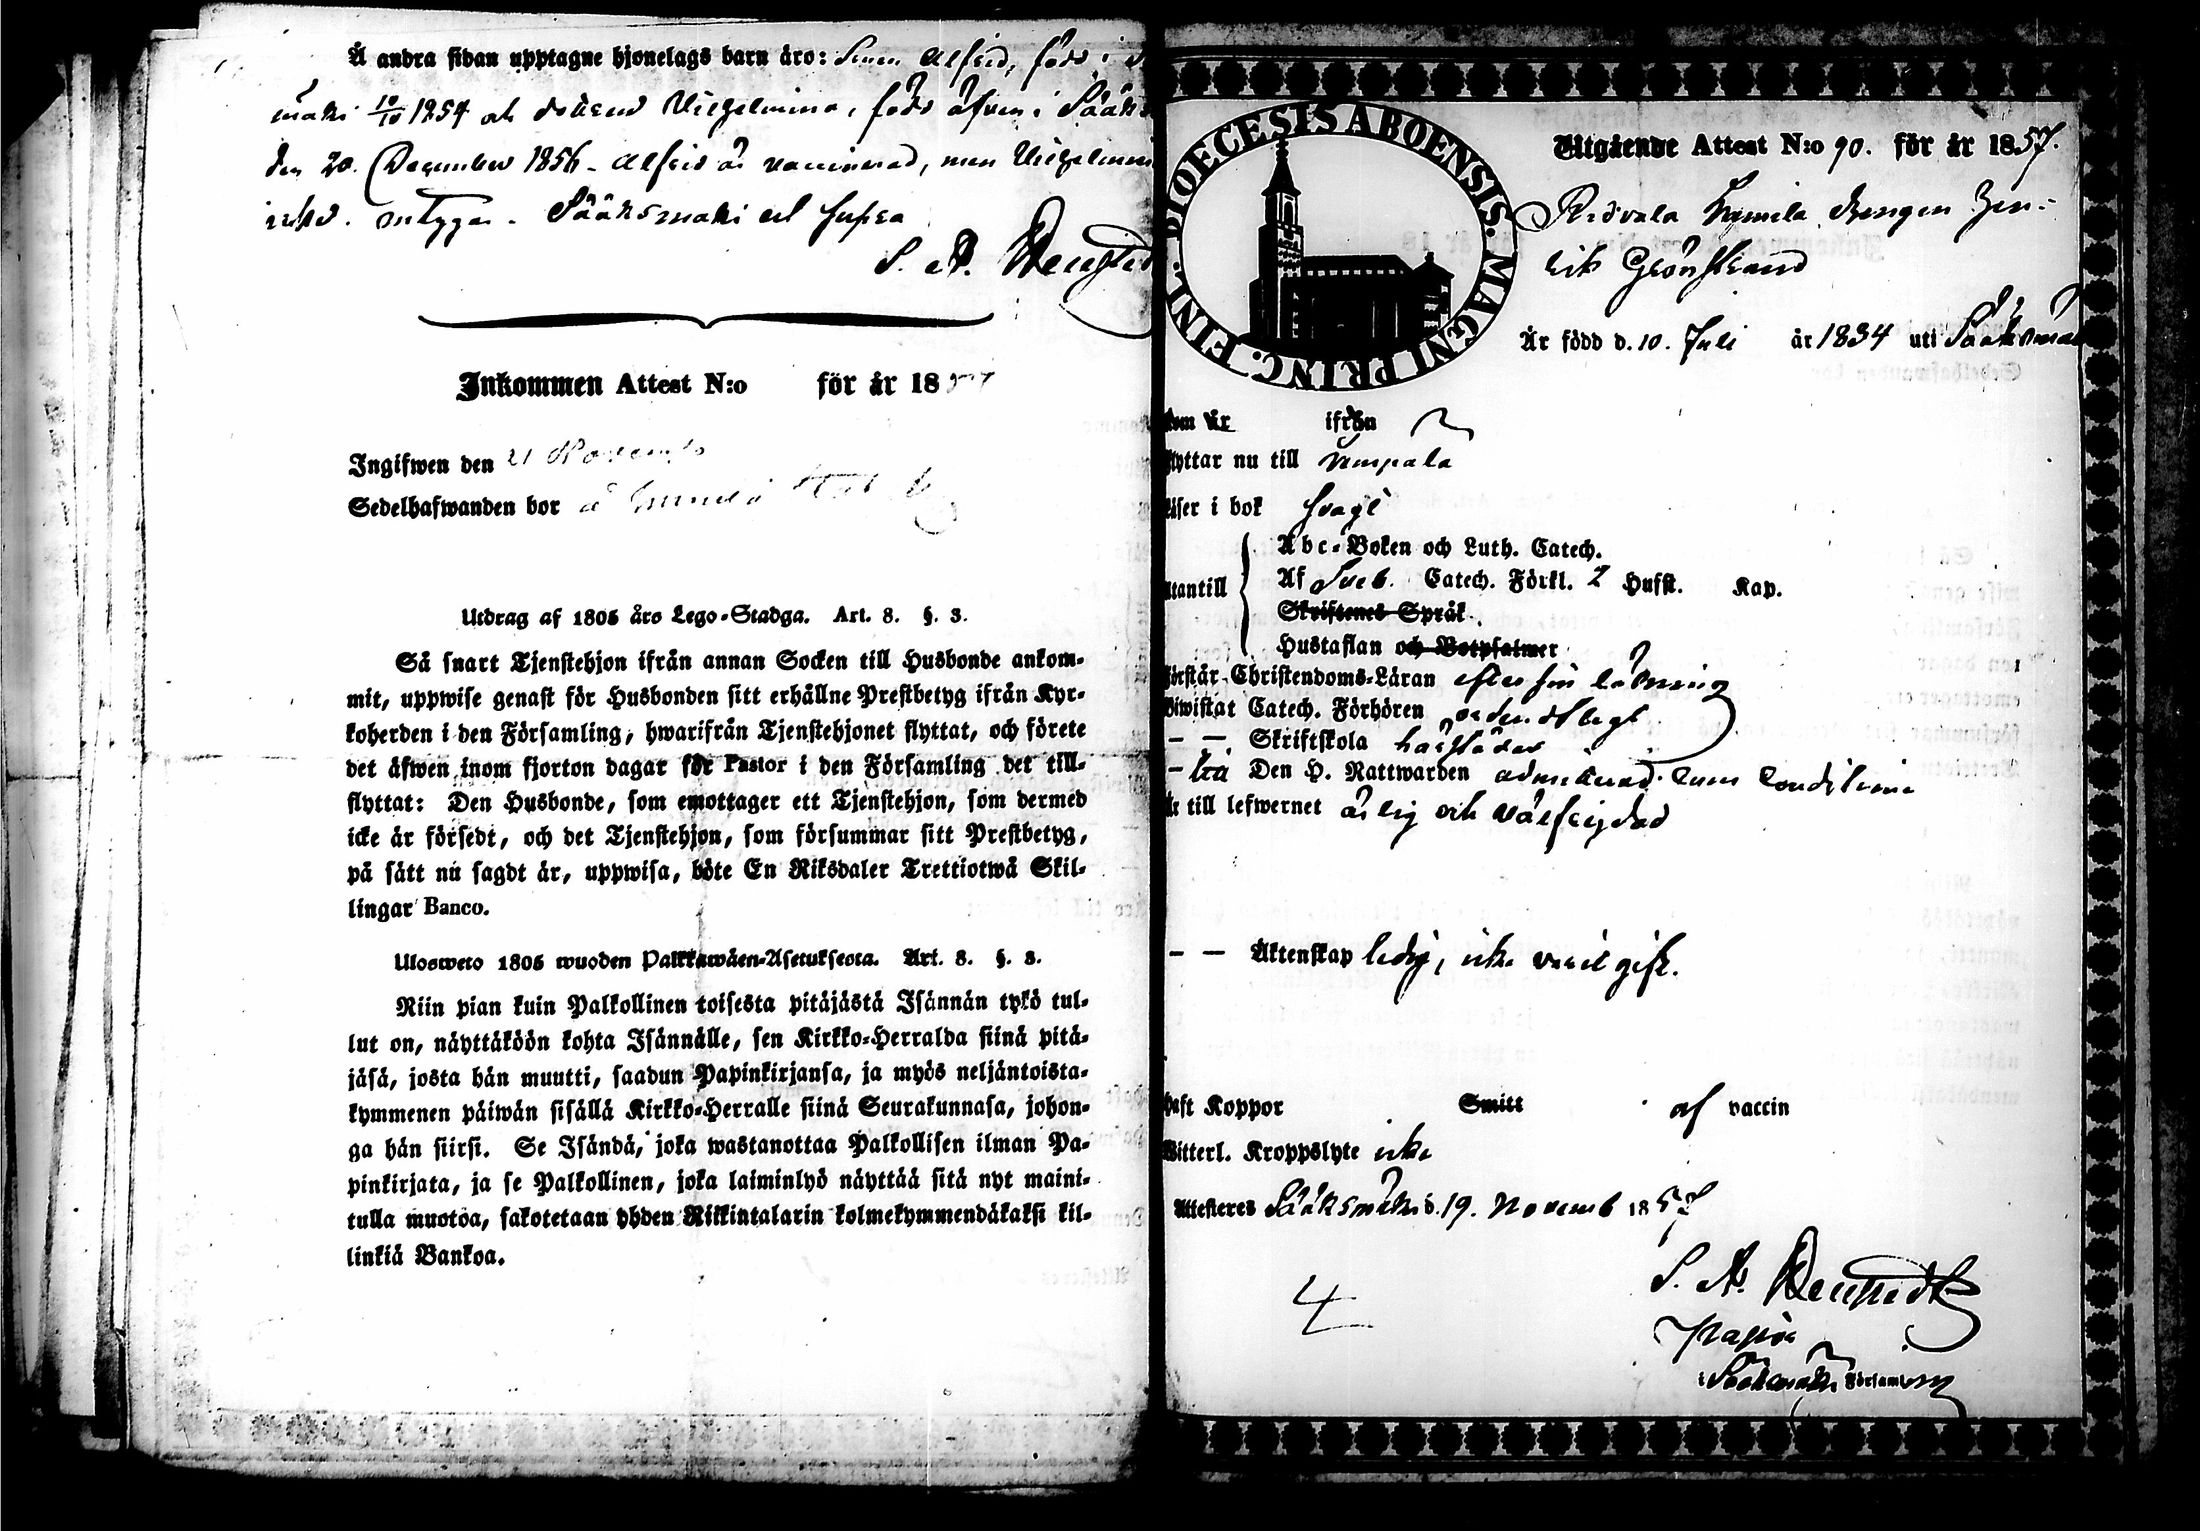 Å andra sidan upptagne hjonelags barn äro: Sonen Alfrid, född i
mäki 10/10 1854 och dottren Wilhelmina, född äfven i Sääks
den 20. December 1856 - Alfrid är vaccinerad, men Wilhelmin
icke. intygar. Sääksmäki ut supra
S. A.
Inkommen Attest N:o för år 1857
Ingifwen den 21 Novemb
Sedelhafwanden bor å
Utdrag af 1805 års Lego-Stadga. Art. 8. §. 3.
Så snart Tjenstehjon ifrån annan Socken till Husbonde ankom-
mit, uppwise genast för Husbonden sitt erhållne Prestbetyg ifrån Kyr-
koherden i den Församling, hwarifrån Tjenstehjonet flyttat, och förete
det äfwen inom fjorton dagar för Pastor i den Församling det till-
flyttat: Den Husbonde, som emottager ett Tjenstehjon, som dermed
icke är försedt, och det Tjenstehjon, som försummar sitt Prestbetyg,
på sätt nu sagdt är, uppwisa, böte En Riksdaler Trettiotwå Skil-
lingar Banco.
Ulosweto 1805 wuoden Palkkawäen-Asetuksesta. Art. 8. §. 3.
Niin pian kuin Palkollinen toisesta pitäjästä Isännän tykö tul-
lut on, näyttäköön kohta Isännälle, sen Kirkko-Herralda siinä pitä-
jäsä, josta hän muutti, saadun Papinkirjansa, ja myös neljäntoista-
kymmenen päiwän sisällä Kirkko-Herralle siinä Seurakunnasa, johon-
ga hän siirsi. Se Isändä, joka wastanottaa Palkollisen ilman Pa-
pinkirjata, ja se Palkollinen, joka laiminlyö näyttää sitä nyt maini-
tulla muotoa, sakotetaan yhden Riikintalarin kolmekymmendäkaksi kil-
linkiä Bankoa.
DIOECESIS ABOENSIS. MAGNI PRINC. FINL.
Utgående Attest N:o 90. för år 1857.
Ridvala drengen Hen-
rik Grönstrand
Är född d. 10. Juli år 1834 uti Sääksmäki
kom år ifrån
flyttar nu till Lempälä
läser i bok svagt
utantill
Abc-Boken och Luth. Catech.
Af Sveb. Catech. Förkl. 2 Hufst. Kap.
Skriftenes Språk.
Hustaflan och Botpsalmer
förstår Christendoms-Läran efter sin läsning
Biwistat Catech. Förhören ordentligt
— — Skriftskola
— Den H. Nattwarden admitterad cum conditione
Är till lefwernet ärlig och välfrejdad
— — Äktenskap ledig, icke varit gift.
Haft Koppor Smitt af vaccin
Witterl. Kroppslyte icke
Attesteras Sääksmäki d. 19. Novemb 1857
S. A.
4
Pastor
i Sääksmäki Församling